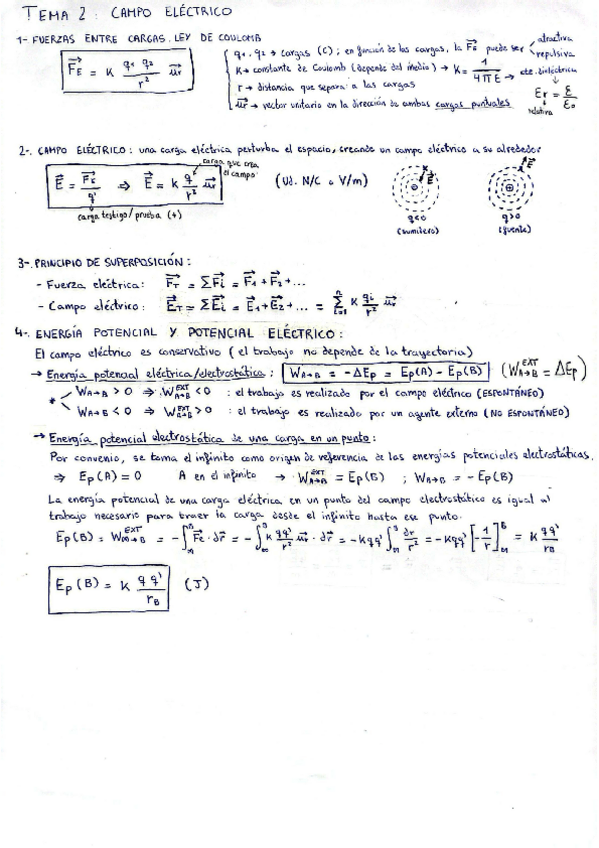 TEMA 2: CAMPO ELÉCTRICO
1- FUERZAS ENTRE CARGAS. LEY DE COULOMB
F⃗E = K q1 q2 / r² u⃗r
q1, q2 → cargas (C); en función de las cargas, la F⃗E puede ser atractiva repulsiva
K → constante de Coulomb (depende del medio) → K = 1 / 4πε → cte. dieléctrica
εr = ε / ε0
relativa
r → distancia que separa a las cargas
u⃗r → vector unitario en la dirección de ambas cargas puntuales
2-. CAMPO ELÉCTRICO: una carga eléctrica perturba el espacio, creando un campo eléctrico a su alrededor
carga que crea el campo
E⃗ = F⃗E / q' ⇒ E⃗ = K q / r² u⃗r (Ud. N/C o V/m)
carga testigo/prueba (+)
E⃗
q<0
(sumidero)
E⃗
q>0
(fuente)
3-. PRINCIPIO DE SUPERPOSICIÓN:
- Fuerza eléctrica: F⃗T = ΣF⃗i = F⃗1 + F⃗2 + ...
- Campo eléctrico: E⃗T = ΣE⃗i = E⃗1 + E⃗2 + ... = Σ i=1 n K qi / r² u⃗r
4-. ENERGÍA POTENCIAL Y POTENCIAL ELÉCTRICO:
El campo eléctrico es conservativo (el trabajo no depende de la trayectoria)
→ Energía potencial eléctrica/electrostática: WA→B = -ΔEp = Ep(A) - Ep(B) (W EXT A→B = ΔEp)
* WA→B > 0 ⇒ W EXT A→B < 0 : el trabajo es realizado por el campo eléctrico (ESPONTÁNEO)
WA→B < 0 ⇒ W EXT A→B > 0 : el trabajo es realizado por un agente externo (NO ESPONTÁNEO)
→ Energía potencial electrostática de una carga en un punto:
Por convenio, se toma el infinito como origen de referencia de las energías potenciales electrostáticas.
⇒ Ep(A) = 0 A en el infinito → W EXT A→B = Ep(B) ; WA→B = - Ep(B)
La energía potencial de una carga eléctrica en un punto del campo electrostático es igual al
trabajo necesario para traer la carga desde el infinito hasta ese punto.
Ep(B) = W EXT ∞→B = -∫ F⃗e · dr⃗ = -∫ K qq' / r² u⃗r · dr⃗ = -Kqq' ∫ dr / r² = -Kqq' [-1/r] B ∞ = K qq' / rB
Ep(B) = K q q' / rB (J)